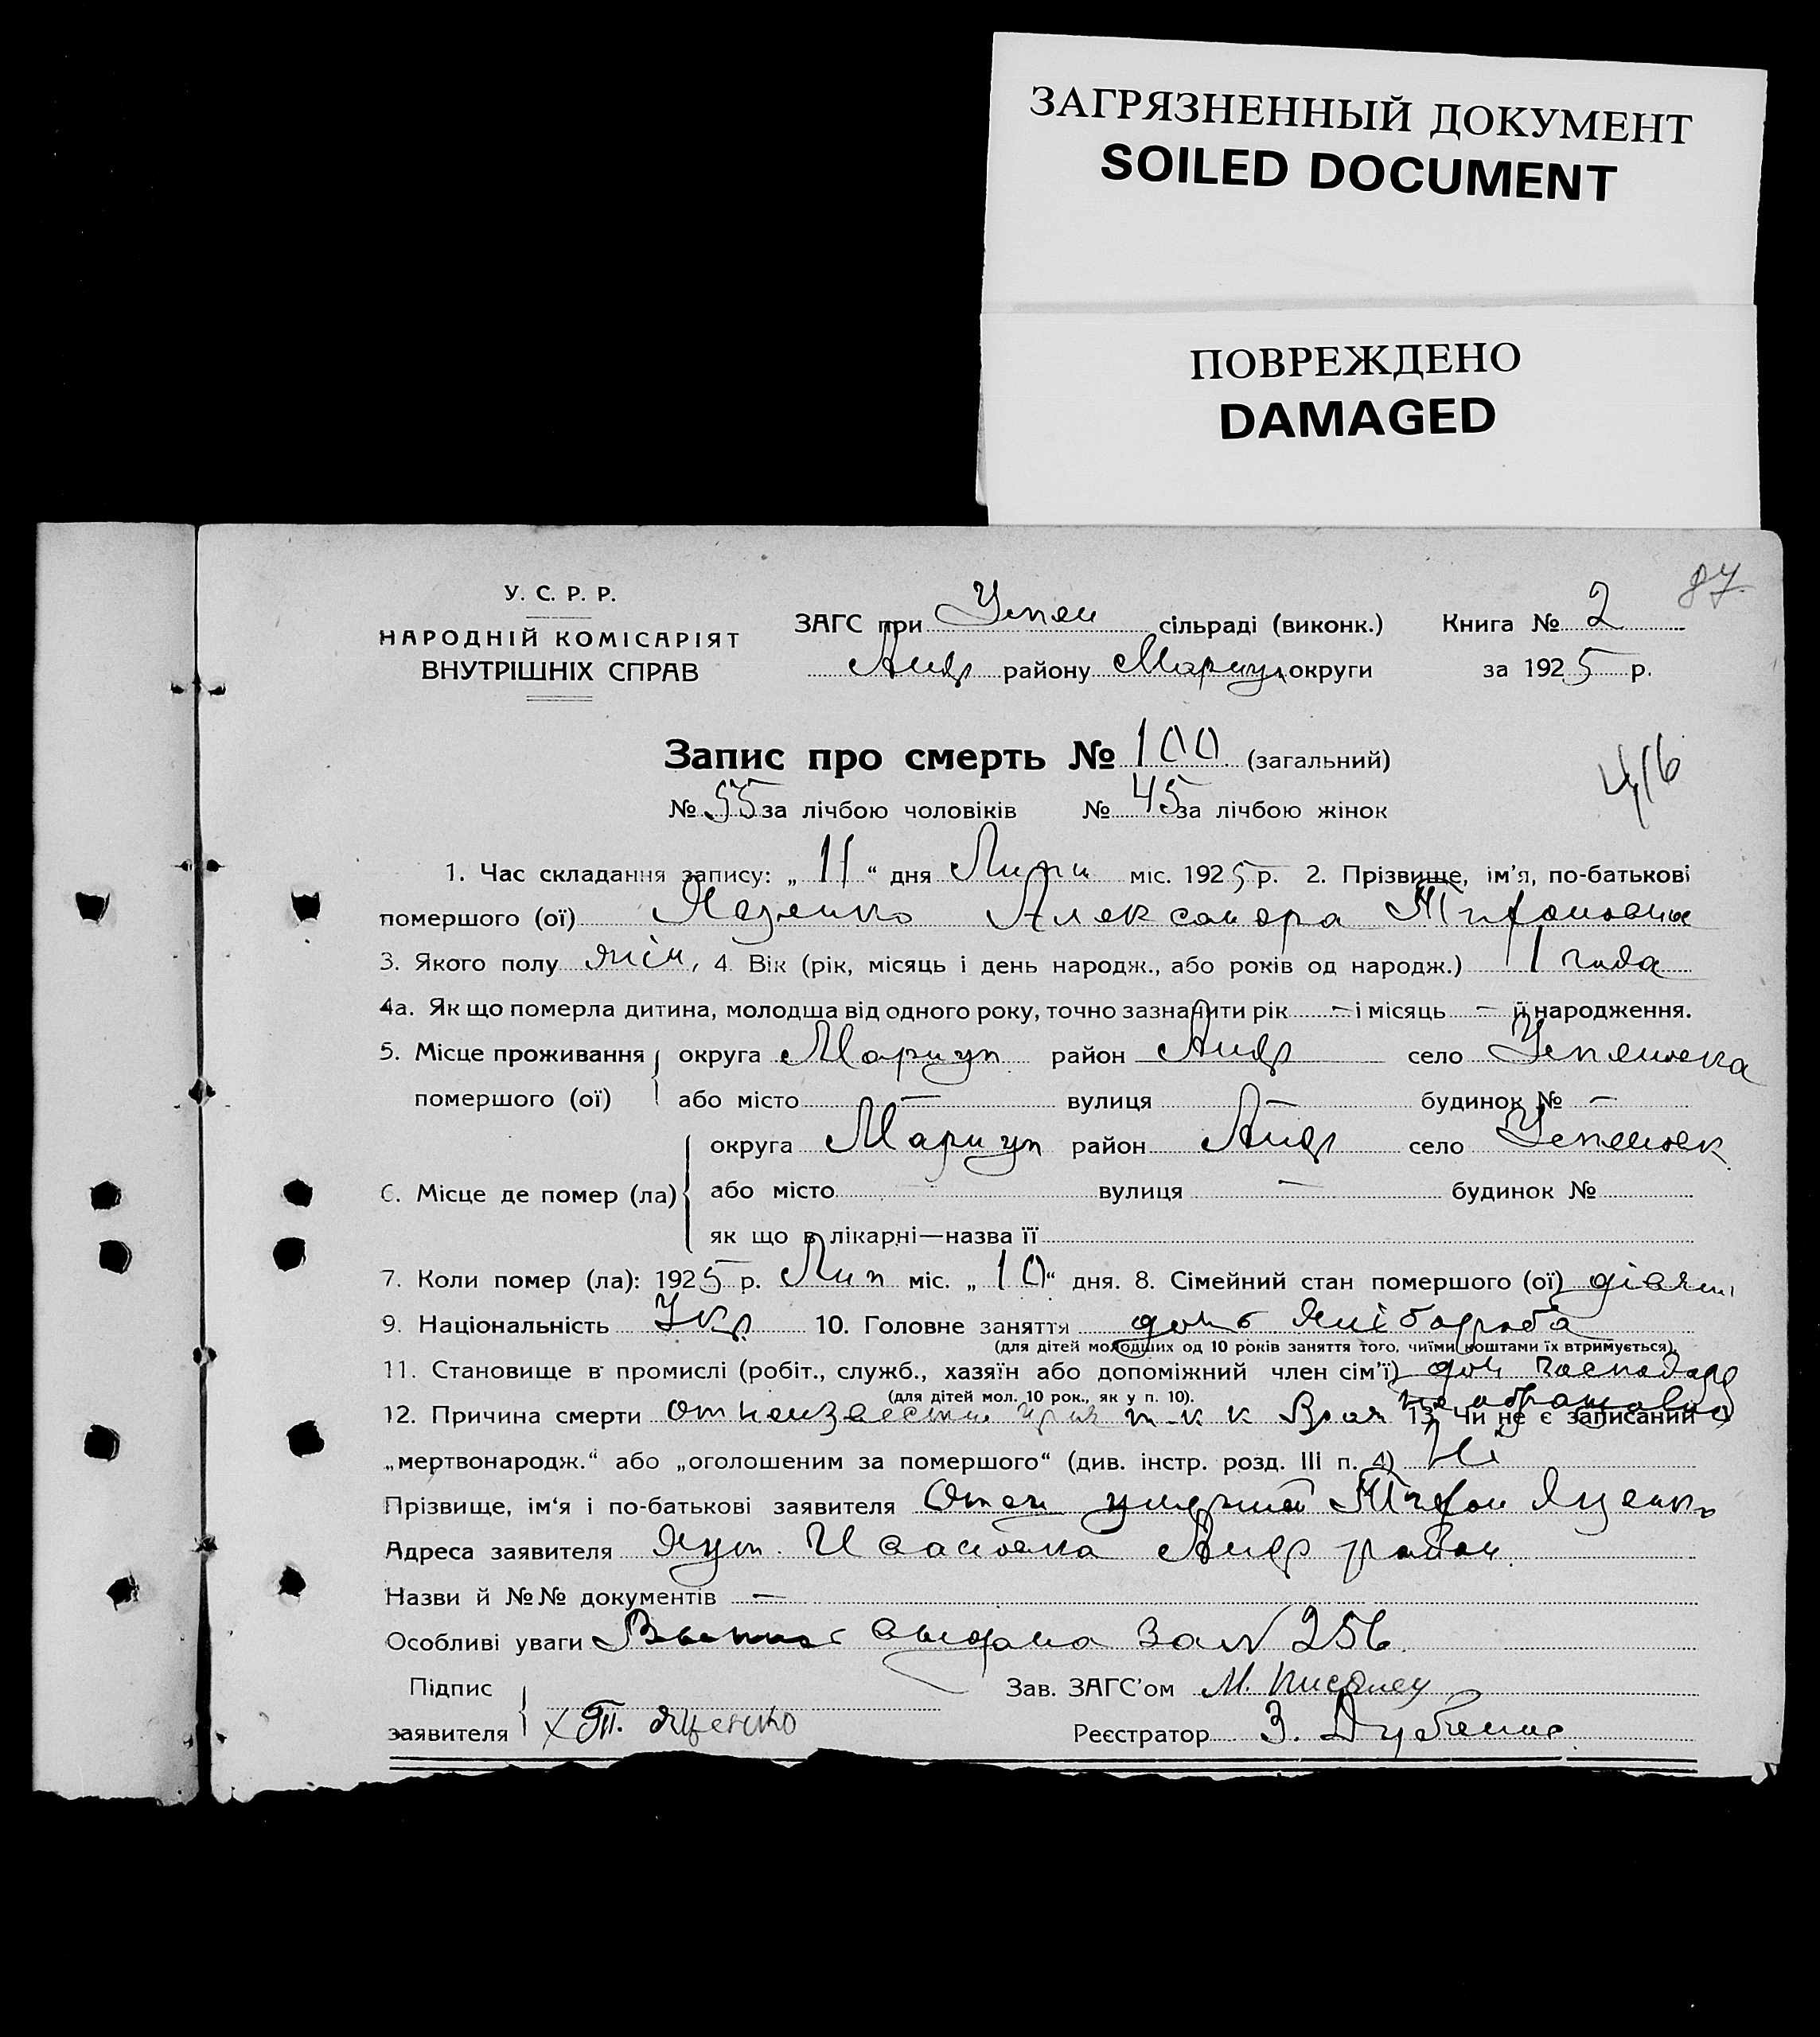 ЗАГРЯЗНЕННЫЙ ДОКУМЕНТ
SOILED DOCUMENT
ПОВРЕЖДЕНО
DAMAGED
87
У. С. Р. Р.
НАРОДНІЙ КОМІСАРІЯТ
ВНУТРІШНІХ СПРАВ
ЗАГС при Успен сільраді (виконк.) Книга № 2
Андр району Мариуп округи за 1925 р.
Запис про смерть № 100 (загальний)
№ 55 за лічбою чоловіків № 45 за лічбою жінок
1. Час складання запису: „ 11 “ дня Липн міс. 1925 р. 2. Прізвище, ім'я, по-батькові
помершого (ої) Яценко Александра
3. Якого полу жін, 4. Вік (рік, місяць і день народж., або років од народж.) 1 года
4а. Як що померла дитина, молодша від одного року, точно зазначити рік — і місяць — її народження.
5. Місце проживання округа Мариуп район Андр село Успеновка
помершого (ої) або місто — вулиця — будинок № —
округа Мариуп район Андр село Успеновк
6. Місце де помер (ла) або місто вулиця — будинок №
як що в лікарні—назва її
7. Коли помер (ла): 1925 р. Лип міс. „ 10 “ дня. 8. Сімейний стан помершого (ої)
9. Національність Укр 10. Головне заняття дочь хлібороба
(для дітей молодших од 10 років заняття того, чиїми коштами їх втримується).
11. Становище в промислі (робіт., служб., хазяїн або допоміжний член сім'ї) доч господаря
(для дітей мол. 10 рок., як у п. 10).
12. Причина смерти От неизвестн т. к к Врач не обращались 13. Чи не є записаний
„мертвонародж.“ або „оголошеним за помершого“ (див. інстр. розд. III п. 4) Ні
Прізвище, ім'я і по-батькові заявителя Отец умершей Яценко
Адреса заявителя хут. Ивановка Андр район.
Назви й №№ документів —
Особливі уваги выдана за № 256
Підпис Зав. ЗАГС'ом М.
заявителя х Т. Яценко Реєстратор З.